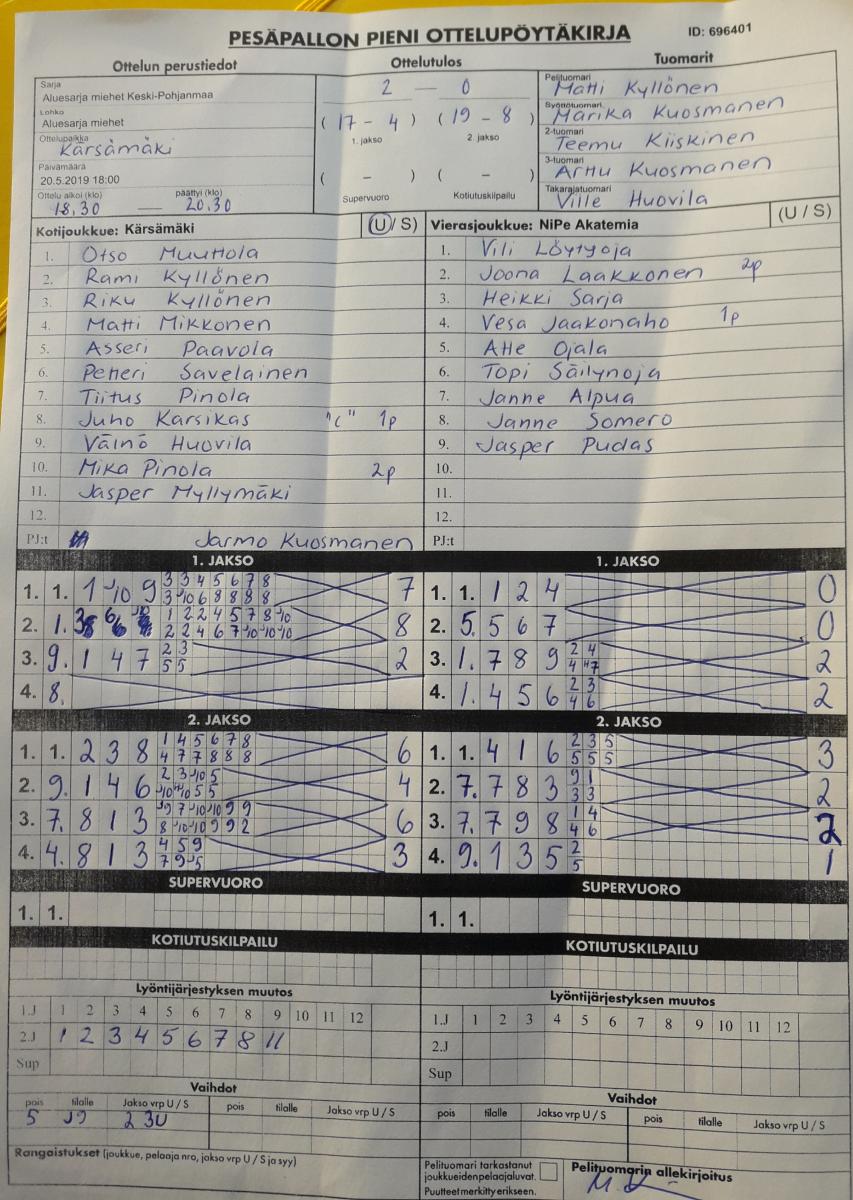 PESÄPALLON PIENI OTTELUPÖYTÄKIRJA
ID: 696401
Ottelun perustiedot
Sarja
Aluesarja miehet Keski-Pohjanmaa
Lohko
Aluesarja miehet
Ottelupaikka
Kärsämäki
Päivämäärä
20.5.2019 18:00
Ottelu alkoi (klo) päättyi (klo)
18.30 — 20.30
Ottelutulos
2 — 0
(17 - 4) (19 - 8)
1. jakso 2. jakso
( - ) ( - )
Supervuoro Kotiutuskilpailu
Tuomarit
Pelituomari
Matti Kyllönen
Syöttötuomari
Marika Kuosmanen
2-tuomari
Teemu Kiiskinen
3-tuomari
Arttu Kuosmanen
Takarajatuomari
Ville Huovila
Kotijoukkue: Kärsämäki (U / S)
1. Otso Muuttola
2. Rami Kyllönen
3. Riku Kyllönen
4. Matti Mikkonen
5. Asseri Paavola
6. Petteri Savelainen
7. Tiitus Pinola
8. Juho Karsikas "C" 1p
9. Väinö Huovila
10. Mika Pinola 2p
11. Jasper Myllymäki
12.
PJ:t Jarmo Kuosmanen
Vierasjoukkue: NiPe Akatemia (U / S)
1. Vili Löytyoja
2. Joona Laakkonen 2p
3. Heikki Sarja
4. Vesa Jaakonaho 1p
5. Atte Ojala
6. Topi Säilynoja
7. Janne Alpua
8. Janne Somero
9. Jasper Pudas
10.
11.
12.
PJ:t
1. JAKSO
1. 1. 1 J10 9 3 3 4 5 6 7 8 7
3 J10 6 8 8 8 8
2. 1. 1 2 2 4 5 7 8 J10 8
2 2 4 6 7 J10 J10 J10
3. 9. 1 4 7 2 3 2
5 5
4. 8.
1. JAKSO
1. 1. 1 2 4 0
2. 5. 5 6 7 0
3. 1. 7 8 9 2 4 2
4 7
4. 1. 4 5 6 2 3 2
4 6
2. JAKSO
1. 1. 2 3 8 1 4 5 6 7 8 6
4 7 7 8 8 8
2. 9. 1 4 6 2 3 J10 5 4
J10 J10 5 5
3. 7. 8 1 3 J9 7 J10 J10 9 9 6
8 J10 J10 9 9 2
4. 4. 8 1 3 4 5 9 3
7 9 J5
2. JAKSO
1. 1. 4 1 6 2 3 5 3
5 5 5
2. 7. 7 8 3 9 1 2
3 3
3. 7. 7 9 8 1 4 2
4 6
4. 9. 1 3 5 2 1
5
SUPERVUORO
1. 1.
SUPERVUORO
1. 1.
KOTIUTUSKILPAILU
KOTIUTUSKILPAILU
Lyöntijärjestyksen muutos
1.J 1 2 3 4 5 6 7 8 9 10 11 12
2.J 1 2 3 4 5 6 7 8 11
Sup
Lyöntijärjestyksen muutos
1.J 1 2 3 4 5 6 7 8 9 10 11 12
2.J
Sup
Vaihdot
pois tilalle Jakso vrp U / S pois tilalle Jakso vrp U / S
5 J9 2 3U
Vaihdot
pois tilalle Jakso vrp U / S pois tilalle Jakso vrp U / S
Rangaistukset (joukkue, pelaaja nro, jakso vrp U / S ja syy)
Pelituomari tarkastanut
joukkueiden pelaajaluvat.
Puutteet merkitty erikseen.
Pelituomarin allekirjoitus